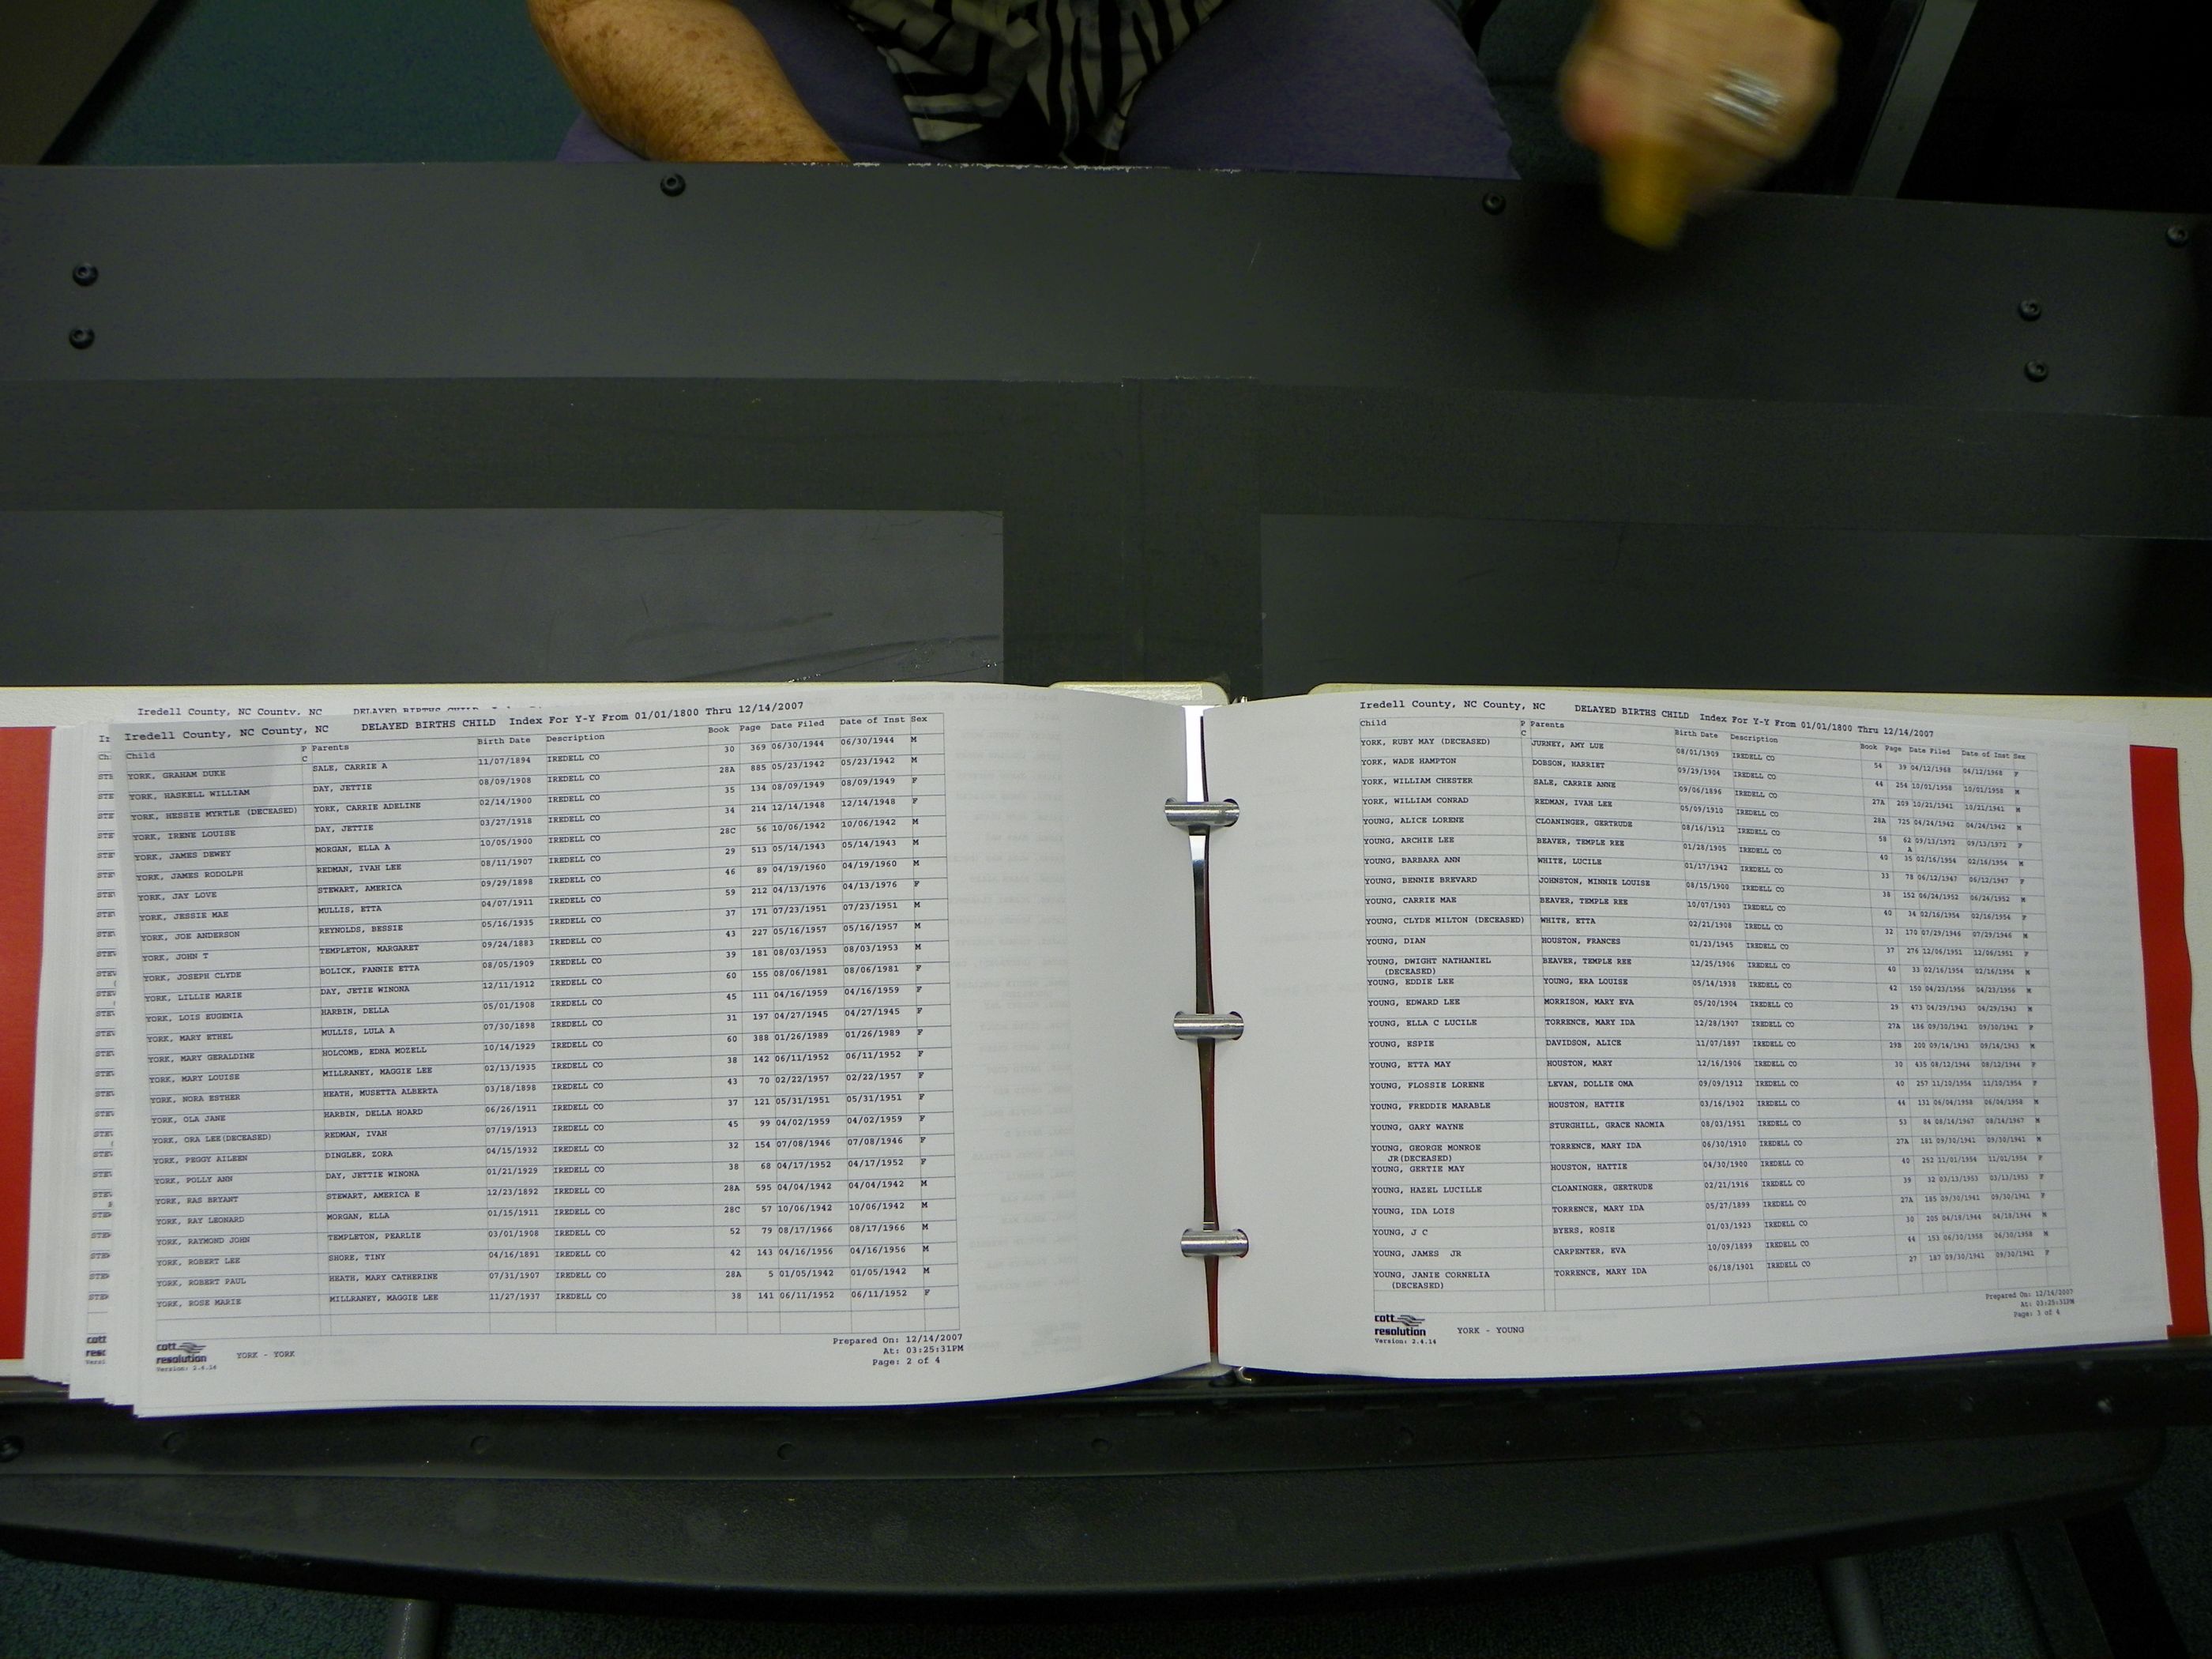 Iredell County, NC County, NC DELAYED BIRTHS CHILD
Iredell County, NC County, NC DELAYED BIRTHS CHILD Index For Y-Y From 01/01/1800 Thru 12/14/2007
Child P C Parents Birth Date Description Book Page Date Filed Date of Inst Sex
YORK, GRAHAM DUKE SALE, CARRIE A 11/07/1894 IREDELL CO 30 369 06/30/1944 06/30/1944 M
YORK, HASKELL WILLIAM DAY, JETTIE 08/09/1908 IREDELL CO 28A 885 05/23/1942 05/23/1942 M
YORK, HESSIE MYRTLE (DECEASED) YORK, CARRIE ADELINE 02/14/1900 IREDELL CO 35 134 08/09/1949 08/09/1949 F
YORK, IRENE LOUISE DAY, JETTIE 03/27/1918 IREDELL CO 34 214 12/14/1948 12/14/1948 F
YORK, JAMES DEWEY MORGAN, ELLA A 10/05/1900 IREDELL CO 28C 56 10/06/1942 10/06/1942 M
YORK, JAMES RODOLPH REDMAN, IVAH LEE 08/11/1907 IREDELL CO 29 513 05/14/1943 05/14/1943 M
YORK, JAY LOVE STEWART, AMERICA 09/29/1898 IREDELL CO 46 89 04/19/1960 04/19/1960 M
YORK, JESSIE MAE MULLIS, ETTA 04/07/1911 IREDELL CO 59 212 04/13/1976 04/13/1976 F
YORK, JOE ANDERSON REYNOLDS, BESSIE 05/16/1935 IREDELL CO 37 171 07/23/1951 07/23/1951 M
YORK, JOHN T TEMPLETON, MARGARET 09/24/1883 IREDELL CO 43 227 05/16/1957 05/16/1957 M
YORK, JOSEPH CLYDE BOLICK, FANNIE ETTA 08/05/1909 IREDELL CO 39 181 08/03/1953 08/03/1953 M
YORK, LILLIE MARIE DAY, JETIE WINONA 12/11/1912 IREDELL CO 60 155 08/06/1981 08/06/1981 F
YORK, LOIS EUGENIA HARBIN, DELLA 05/01/1908 IREDELL CO 45 111 04/16/1959 04/16/1959 F
YORK, MARY ETHEL MULLIS, LULA A 07/30/1898 IREDELL CO 31 197 04/27/1945 04/27/1945 F
YORK, MARY GERALDINE HOLCOMB, EDNA MOZELL 10/14/1929 IREDELL CO 60 388 01/26/1989 01/26/1989 F
YORK, MARY LOUISE MILLRANEY, MAGGIE LEE 02/13/1935 IREDELL CO 38 142 06/11/1952 06/11/1952 F
YORK, NORA ESTHER HEATH, MUSETTA ALBERTA 03/18/1898 IREDELL CO 43 70 02/22/1957 02/22/1957 F
YORK, OLA JANE HARBIN, DELLA HOARD 06/26/1911 IREDELL CO 37 121 05/31/1951 05/31/1951 F
YORK, ORA LEE(DECEASED) REDMAN, IVAH 07/19/1913 IREDELL CO 45 99 04/02/1959 04/02/1959 F
YORK, PEGGY AILEEN DINGLER, ZORA 04/15/1932 IREDELL CO 32 154 07/08/1946 07/08/1946 F
YORK, POLLY ANN DAY, JETTIE WINONA 01/21/1929 IREDELL CO 38 68 04/17/1952 04/17/1952 F
YORK, RAS BRYANT STEWART, AMERICA E 12/23/1892 IREDELL CO 28A 595 04/04/1942 04/04/1942 M
YORK, RAY LEONARD MORGAN, ELLA 01/15/1911 IREDELL CO 28C 57 10/06/1942 10/06/1942 M
YORK, RAYMOND JOHN TEMPLETON, PEARLIE 03/01/1908 IREDELL CO 52 79 08/17/1966 08/17/1966 M
YORK, ROBERT LEE SHORE, TINY 04/16/1891 IREDELL CO 42 143 04/16/1956 04/16/1956 M
YORK, ROBERT PAUL HEATH, MARY CATHERINE 07/31/1907 IREDELL CO 28A 5 01/05/1942 01/05/1942 M
YORK, ROSE MARIE MILLRANEY, MAGGIE LEE 11/27/1937 IREDELL CO 38 141 06/11/1952 06/11/1952 F
cott resolution YORK - YORK
Version: 2.4.14
Prepared On: 12/14/2007
At: 03:25:31PM
Page: 2 of 4
Iredell County, NC County, NC DELAYED BIRTHS CHILD Index For Y-Y From 01/01/1800 Thru 12/14/2007
Child P C Parents Birth Date Description Book Page Date Filed Date of Inst Sex
YORK, RUBY MAY (DECEASED) JURNEY, AMY LUE 08/01/1909 IREDELL CO 54 39 04/12/1968 04/12/1968 F
YORK, WADE HAMPTON DOBSON, HARRIET 09/29/1904 IREDELL CO 44 254 10/01/1958 10/01/1958 M
YORK, WILLIAM CHESTER SALE, CARRIE ANNE 09/06/1896 IREDELL CO 27A 209 10/21/1941 10/21/1941 M
YORK, WILLIAM CONRAD REDMAN, IVAH LEE 05/09/1910 IREDELL CO 28A 725 04/24/1942 04/24/1942 M
YOUNG, ALICE LORENE CLOANINGER, GERTRUDE 08/16/1912 IREDELL CO 58 62 A 09/13/1972 09/13/1972 F
YOUNG, ARCHIE LEE BEAVER, TEMPLE REE 01/28/1905 IREDELL CO 40 35 02/16/1954 02/16/1954 M
YOUNG, BARBARA ANN WHITE, LUCILE 01/17/1942 IREDELL CO 33 78 06/12/1947 06/12/1947 F
YOUNG, BENNIE BREVARD JOHNSTON, MINNIE LOUISE 08/15/1900 IREDELL CO 38 152 06/24/1952 06/24/1952 M
YOUNG, CARRIE MAE BEAVER, TEMPLE REE 10/07/1903 IREDELL CO 40 34 02/16/1954 02/16/1954 F
YOUNG, CLYDE MILTON (DECEASED) WHITE, ETTA 02/21/1908 IREDELL CO 32 170 07/29/1946 07/29/1946 M
YOUNG, DIAN HOUSTON, FRANCES 01/23/1945 IREDELL CO 37 276 12/06/1951 12/06/1951 F
YOUNG, DWIGHT NATHANIEL BEAVER, TEMPLE REE 12/25/1906 IREDELL CO 40 33 02/16/1954 02/16/1954 M
(DECEASED)
YOUNG, EDDIE LEE YOUNG, ERA LOUISE 05/14/1938 IREDELL CO 42 150 04/23/1956 04/23/1956 M
YOUNG, EDWARD LEE MORRISON, MARY EVA 05/20/1904 IREDELL CO 29 473 04/29/1943 04/29/1943 M
YOUNG, ELLA C LUCILE TORRENCE, MARY IDA 12/28/1907 IREDELL CO 27A 186 09/30/1941 09/30/1941 F
YOUNG, ESPIE DAVIDSON, ALICE 11/07/1897 IREDELL CO 29B 200 09/14/1943 09/14/1943 M
YOUNG, ETTA MAY HOUSTON, MARY 12/16/1906 IREDELL CO 30 435 08/12/1944 08/12/1944 F
YOUNG, FLOSSIE LORENE LEVAN, DOLLIE OMA 09/09/1912 IREDELL CO 40 257 11/10/1954 11/10/1954 F
YOUNG, FREDDIE MARABLE HOUSTON, HATTIE 03/16/1902 IREDELL CO 44 131 06/04/1958 06/04/1958 M
YOUNG, GARY WAYNE STURGHILL, GRACE NAOMIA 08/03/1951 IREDELL CO 53 84 08/14/1967 08/14/1967 M
YOUNG, GEORGE MONROE TORRENCE, MARY IDA 06/30/1910 IREDELL CO 27A 181 09/30/1941 09/30/1941 M
JR(DECEASED)
YOUNG, GERTIE MAY HOUSTON, HATTIE 04/30/1900 IREDELL CO 40 252 11/01/1954 11/01/1954 F
YOUNG, HAZEL LUCILLE CLOANINGER, GERTRUDE 02/21/1916 IREDELL CO 39 32 03/13/1953 03/13/1953 F
YOUNG, IDA LOIS TORRENCE, MARY IDA 05/27/1899 IREDELL CO 27A 185 09/30/1941 09/30/1941 F
YOUNG, J C BYERS, ROSIE 01/03/1923 IREDELL CO 30 205 04/18/1944 04/18/1944 M
YOUNG, JAMES JR CARPENTER, EVA 10/09/1899 IREDELL CO 44 153 06/30/1958 06/30/1958 M
YOUNG, JANIE CORNELIA TORRENCE, MARY IDA 06/18/1901 IREDELL CO 27 187 09/30/1941 09/30/1941 F
(DECEASED)
cott resolution YORK - YOUNG
Version: 2.4.14
Prepared On: 12/14/2007
At: 03:25:31PM
Page: 3 of 4